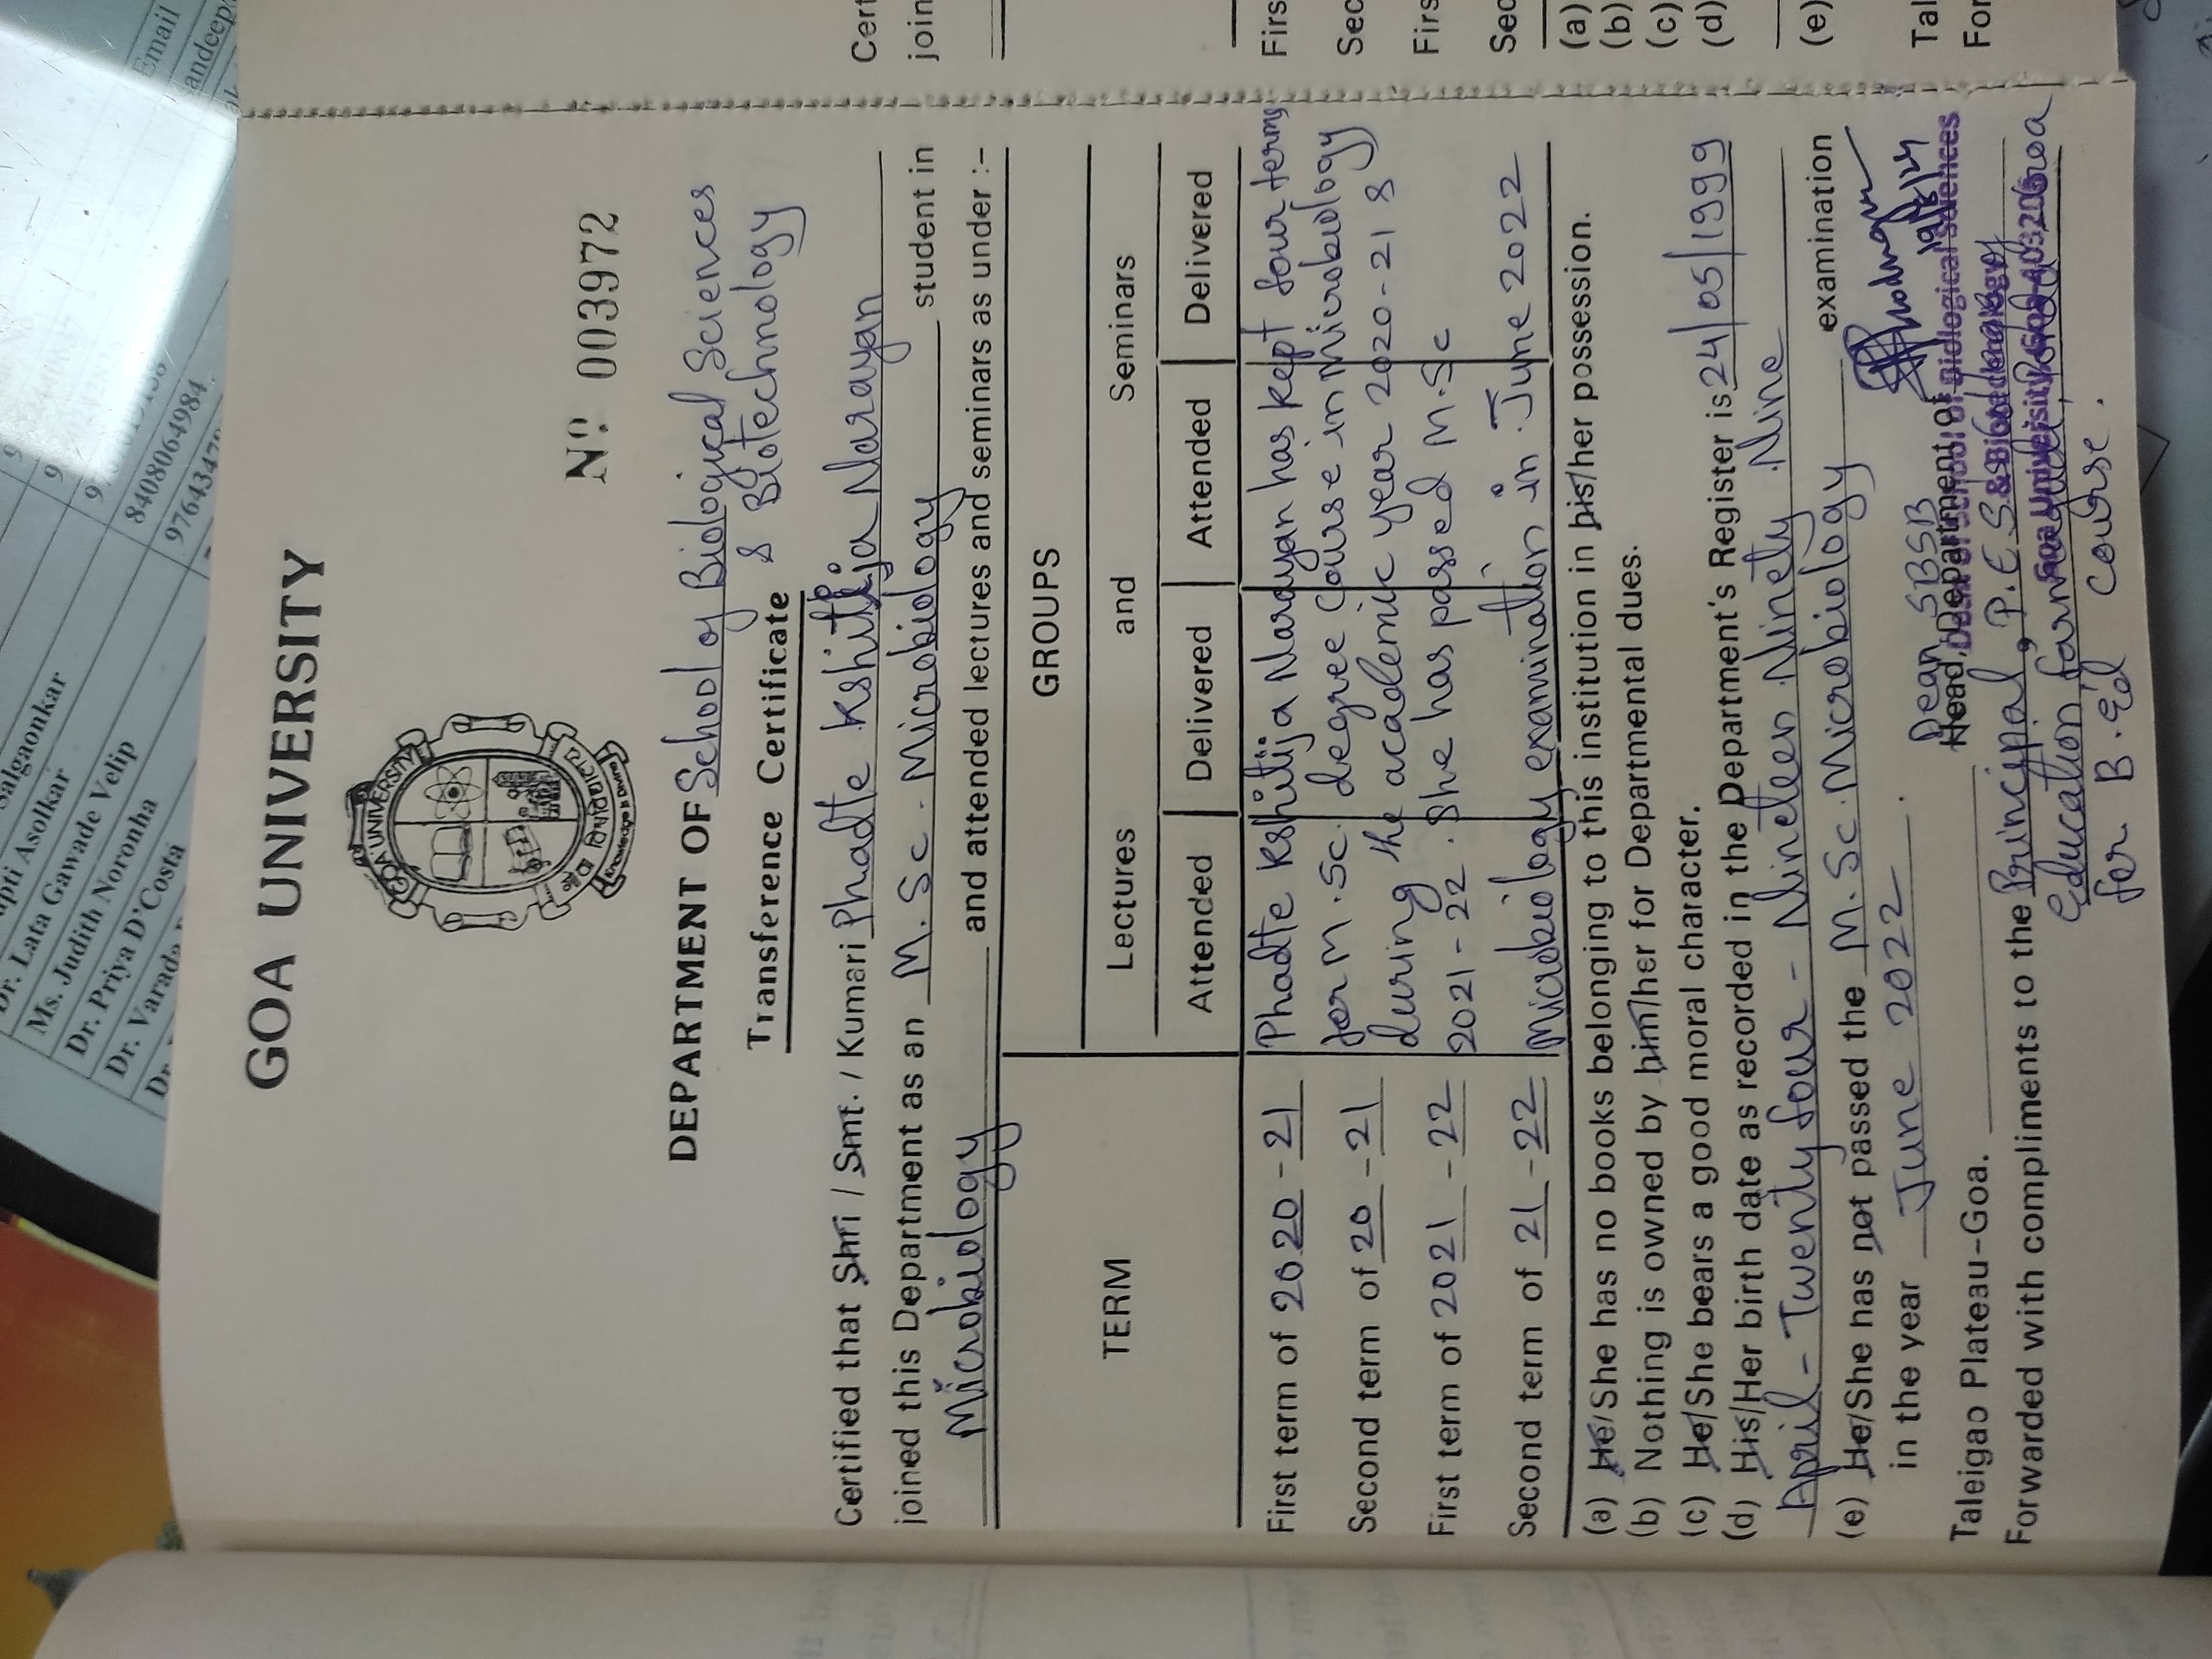 GOA UNIVERSITY
GOA UNIVERSITY
Knowledge is Divine
Nº 003972
DEPARTMENT OF School of Biological Sciences
& Biotechnology
Transference Certificate
Certified that Shri / Smt. / Kumari Phadte Kshitija Narayan
joined this Department as an M.Sc. Microbiology student in
Microbiology and attended lectures and seminars as under :-
TERM
GROUPS
Lectures and Seminars
Attended Delivered Attended Delivered
First term of 2020-21
Second term of 20-21
First term of 2021-22
Second term of 21-22
Phadte Kshitija Narayan has kept four terms
for M.Sc. degree course in Microbiology
during the academic year 2020-21 &
2021-22. She has passed M.Sc
Microbiology examination in June 2022
(a) He/She has no books belonging to this institution in his/her possession.
(b) Nothing is owned by him/her for Departmental dues.
(c) He/She bears a good moral character.
(d) His/Her birth date as recorded in the Department's Register is 24/05/1999
April - Twenty four - Nineteen Ninety Nine
(e) He/She has not passed the M.Sc. Microbiology examination
in the year June 2022.
19/8/24
Dean SBSB
Taleigao Plateau-Goa.
Head, Department of
Dean of School of Biological Sciences
& Biotechnology
Goa University
Forwarded with compliments to the Principal, P.E.S.
Education Goa
for B.Ed course.
Cert
join
Firs
Sec
Firs
Sec
(a)
(b)
(c)
(d)
(e)
Tal
For
Email
andeep
8408064984
976434
Salgaonkar
Asolkar
Dr. Lata Gawade Velip
Ms. Judith Noronha
Dr. Priya D'Costa
Dr. Varada
Dr.